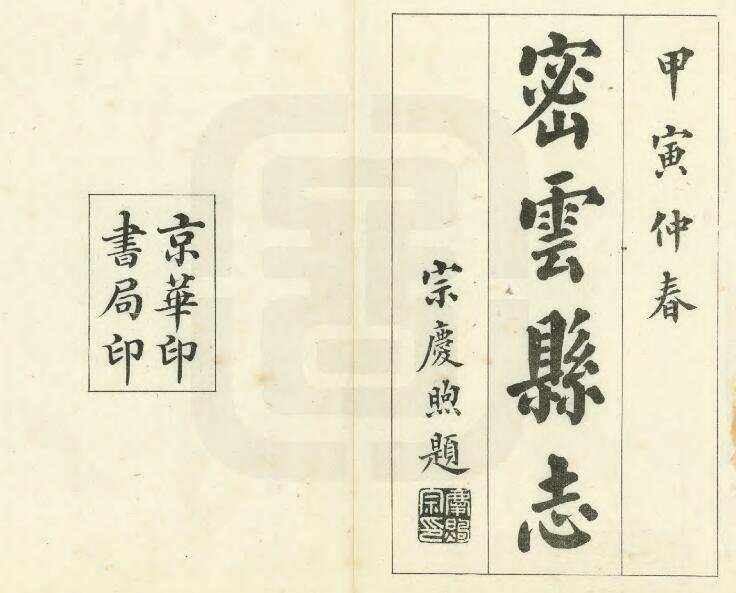 甲寅仲春
密雲縣志
宗慶煦題
京華印
書局印